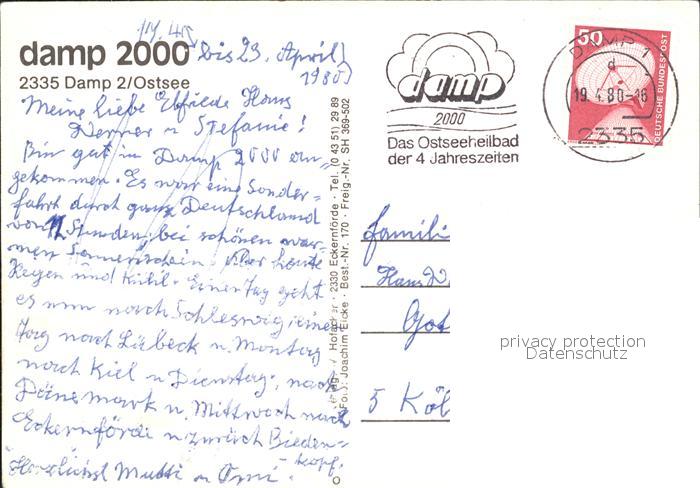 damp 2000
bis 23. April
2335 Damp 2/Ostsee
1980
Meine liebe Elfriede Hans
Werner u Stefanie!
Bin gut in Damp 2000 an-
gekommen. Es war eine Sonder-
fahrt durch ganz Deutschland
von 11 Stunden, bei schönen war-
men Sonnenschein. Aber heute
Regen und kühl. Einen Tag geht
es nun nach Schleswig, einen
Tag nach Lübeck u. Montag
nach Kiel u Dienstag, nach
Dänemark u. Mittwoch nach
Eckernförde u zurück Bieden-
kopf.
Herzlichst Mutti u Omi
Hofacker · 2330 Eckernförde · Tel. (0 43 51) 29 89
Foto: Joachim Eicke · Best.-Nr. 170 · Freig.-Nr. SH 369-502
damp
2000
Das Ostseeheilbad
der 4 Jahreszeiten
50
DEUTSCHE BUNDESPOST
DAMP 1
d
19.4.80-16
2335
Famili
Hans W
Got
5 Köl
privacy protection
Datenschutz